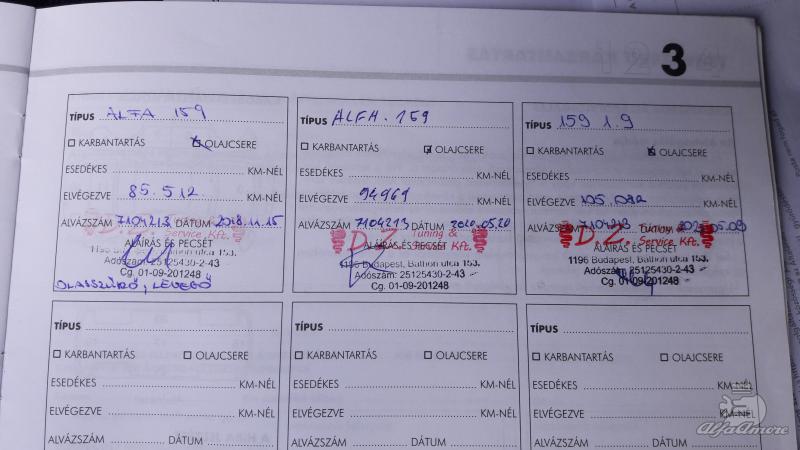 3
TÍPUS ALFA 159
KARBANTARTÁS OLAJCSERE
ESEDÉKES KM-NÉL
ELVÉGEZVE 85.512 KM-NÉL
ALVÁZSZÁM 7104213 DÁTUM 2018.11.15
D.Z. Tuning & Service Kft.
ALÁÍRÁS ÉS PECSÉT
1196 Budapest, Báthori utca 153.
Adószám: 25125430-2-43
Cg. 01-09-201248
OLAJSZŰRŐ, LEVEGŐ
TÍPUS ALFA. 159
KARBANTARTÁS OLAJCSERE
ESEDÉKES KM-NÉL
ELVÉGEZVE 94961 KM-NÉL
ALVÁZSZÁM 7104213 DÁTUM 2020.05.20
D.Z. Tuning & Service Kft.
ALÁÍRÁS ÉS PECSÉT
1196 Budapest, Báthori utca 153.
Adószám: 25125430-2-43
Cg. 01-09-201248
TÍPUS 159 1.9
KARBANTARTÁS OLAJCSERE
ESEDÉKES KM-NÉL
ELVÉGEZVE KM-NÉL
ALVÁZSZÁM 7104213
D.Z. Tuning & Service Kft.
ALÁÍRÁS ÉS PECSÉT
1196 Budapest, Báthori utca 153.
Adószám: 25125430-2-43
Cg. 01-09-201248
TÍPUS
KARBANTARTÁS OLAJCSERE
ESEDÉKES KM-NÉL
ELVÉGEZVE KM-NÉL
ALVÁZSZÁM DÁTUM
TÍPUS
KARBANTARTÁS OLAJCSERE
ESEDÉKES KM-NÉL
ELVÉGEZVE KM-NÉL
ALVÁZSZÁM DÁTUM
TÍPUS
KARBANTARTÁS OLAJCSERE
ESEDÉKES KM-NÉL
ELVÉGEZVE KM-NÉL
ALVÁZSZÁM DÁTUM
AlfAmore